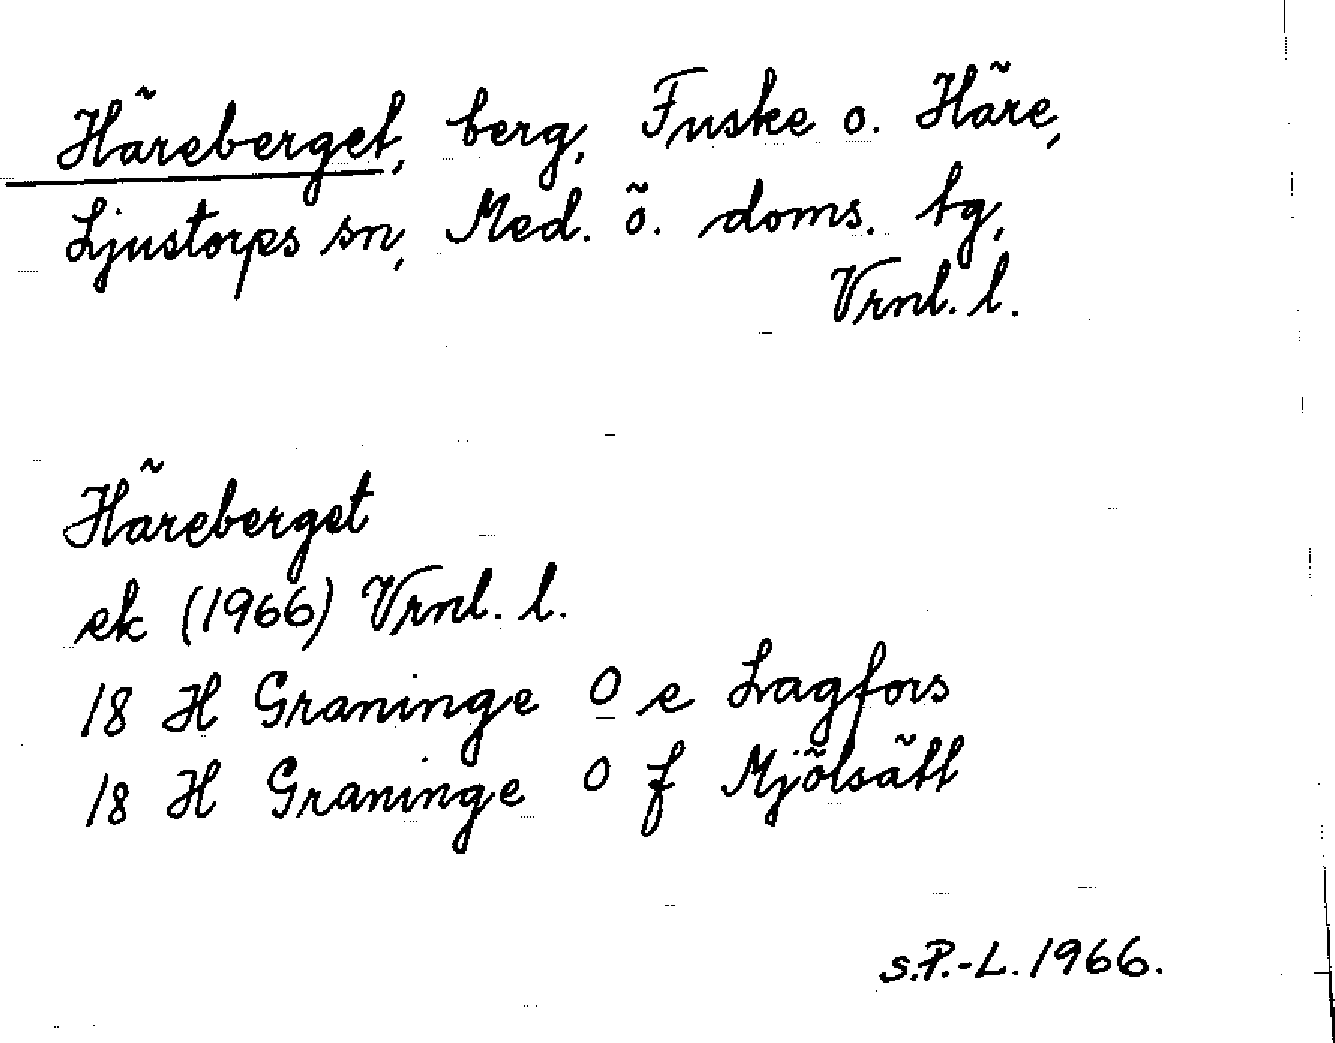 Häreberget, berg, Fuske o. Häre,
Ljustorps sn, Med. ö. doms. tg,
Vrnl. l.
Häreberget
ek (1966) Vrnl. l.
18 H Graninge O e Lagfors
18 H Graninge O f Mjölsätt
S.P.-L. 1966.